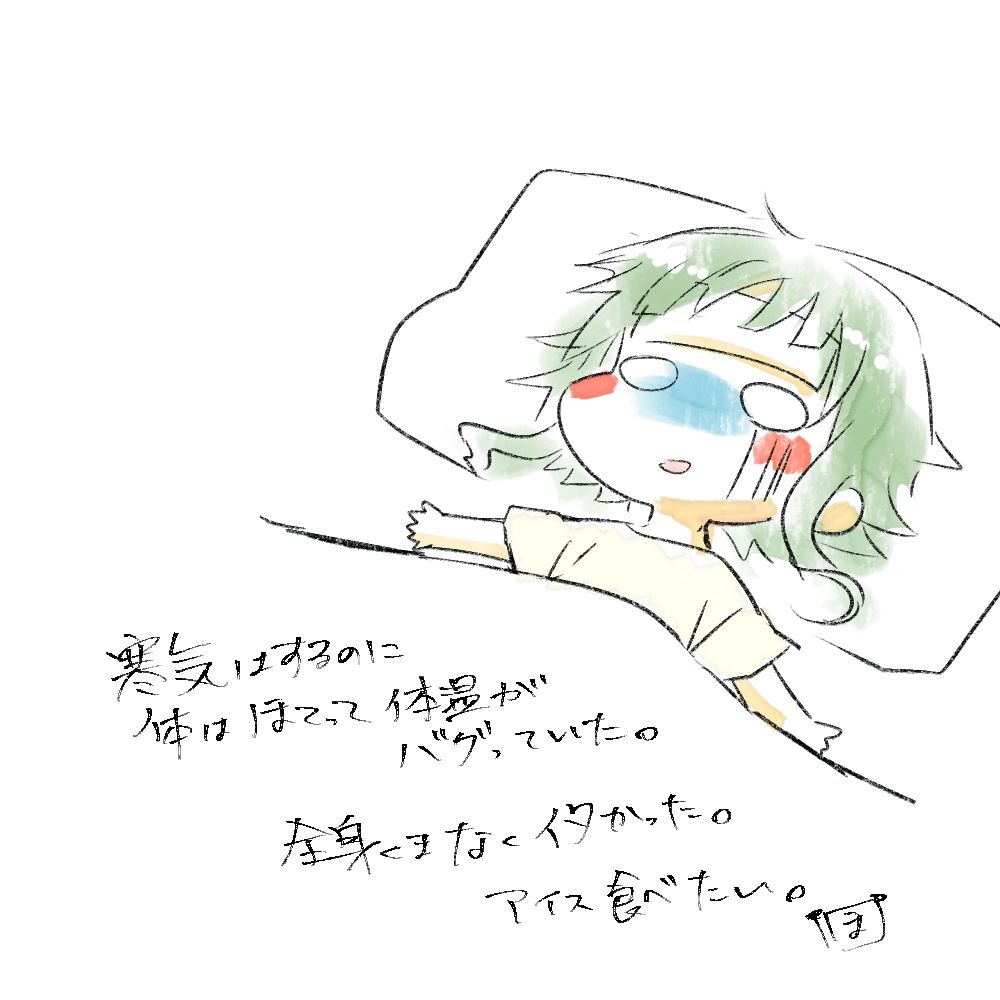 寒気はするのに
体はほてって体温が
バグっていた。
全身くまなくイタかった。
アイス食べたい。
ほ